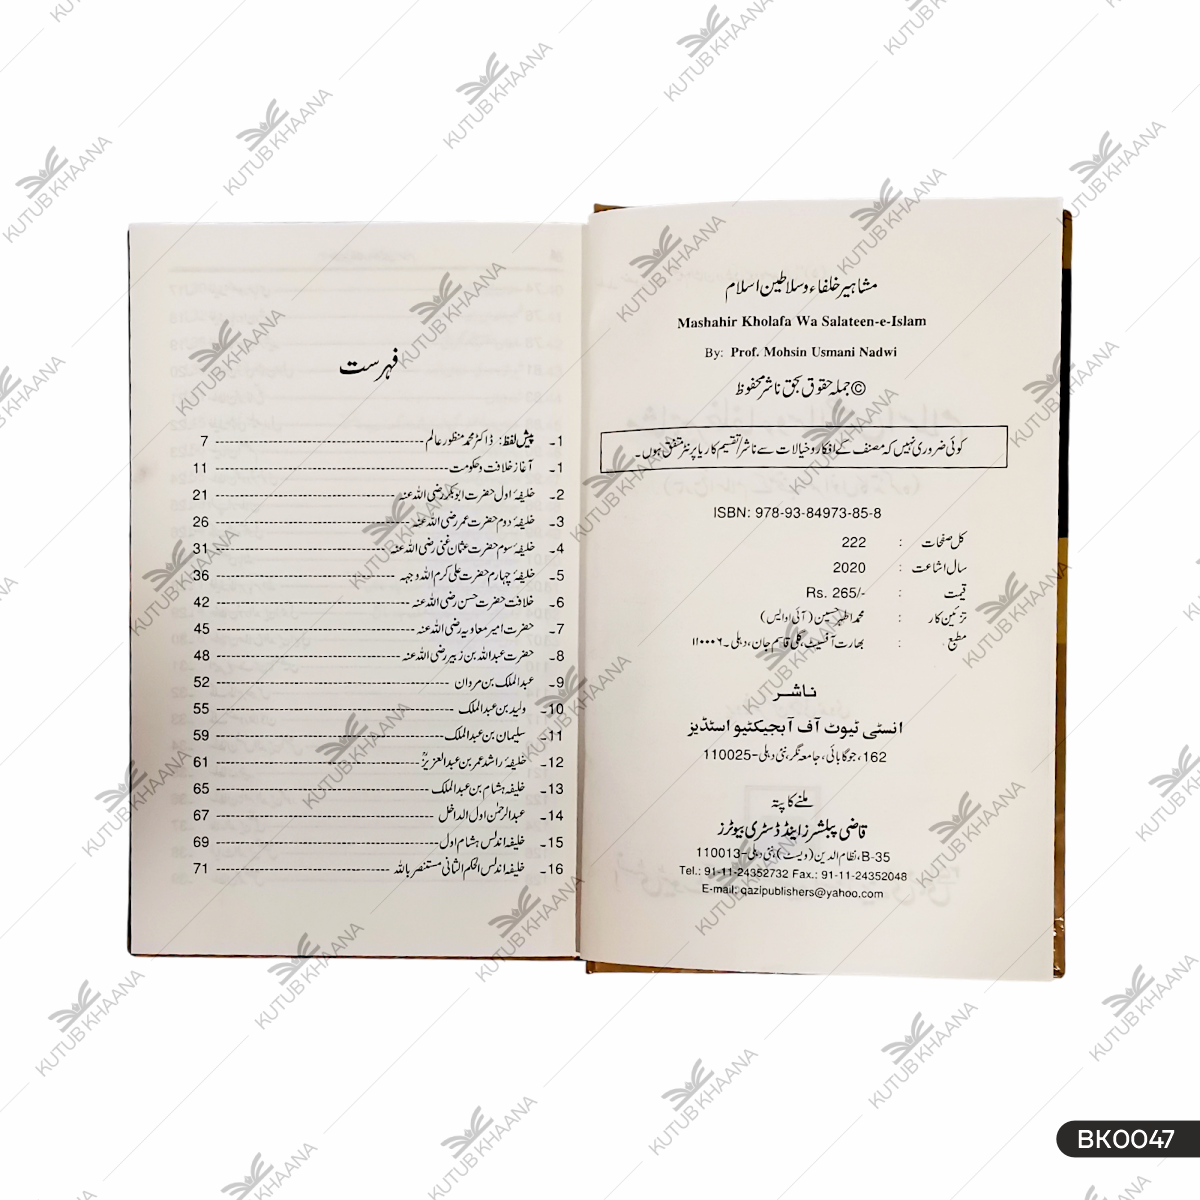 مشاہیر خلفاء و سلاطین اسلام
Mashahir Kholafa Wa Salateen-e-Islam
By: Prof. Mohsin Usmani Nadwi
© جملہ حقوق بحق ناشر محفوظ
کوئی ضروری نہیں کہ مصنف کے افکار و خیالات سے ناشر/تقسیم کار یا پرنٹر متفق ہوں۔
ISBN: 978-93-84973-85-8
کل صفحات : 222
سال اشاعت : 2020
قیمت : Rs. 265/-
تزئین کار : محمد اظہر حسین (آئی او ایس)
مطبع : بھارت آفسیٹ، گلی قاسم جان، دہلی۔۱۱۰۰۰۶
ناشر
انسٹی ٹیوٹ آف آبجیکٹیو اسٹڈیز
162، جوگابائی، جامعہ نگر، نئی دہلی-110025
ملنے کا پتہ
قاضی پبلشرز اینڈ ڈسٹری بیوٹرز
B-35، نظام الدین (ویسٹ)، نئی دہلی-110013
Tel.: 91-11-24352732 Fax.: 91-11-24352048
E-mail: qazipublishers@yahoo.com
فہرست
1۔ پیش لفظ: ڈاکٹر محمد منظور عالم 7
1۔ آغاز خلافت و حکومت 11
2۔ خلیفۂ اول حضرت ابو بکر رضی اللہ عنہ 21
3۔ خلیفۂ دوم حضرت عمر رضی اللہ عنہ 26
4۔ خلیفۂ سوم حضرت عثمان غنی رضی اللہ عنہ 31
5۔ خلیفۂ چہارم حضرت علی کرم اللہ وجہہ 36
6۔ خلافت حضرت حسن رضی اللہ عنہ 42
7۔ حضرت امیر معاویہ رضی اللہ عنہ 45
8۔ حضرت عبداللہ بن زبیر رضی اللہ عنہ 48
9۔ عبدالملک بن مروان 52
10۔ ولید بن عبدالملک 55
11۔ سلیمان بن عبدالملک 59
12۔ خلیفۂ راشد عمر بن عبدالعزیزؒ 61
13۔ خلیفہ ہشام بن عبدالملک 65
14۔ عبدالرحمٰن اول الداخل 67
15۔ خلیفہ اندلس ہشام اول 69
16۔ خلیفہ اندلس الحکم الثانی مستنصر باللہ 71
KUTUB KHAANA
BK0047